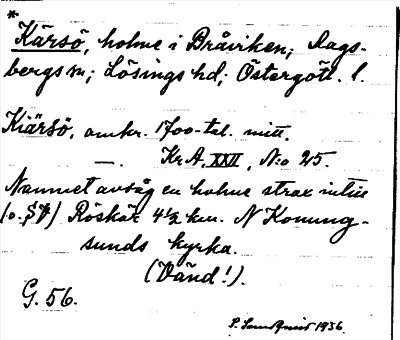 * Kärsö, holme i Bråviken; Dags-
bergs sn; Lösings hd; Östergötl. l.
Kiärsö, omkr. 1700-tal. mitt.
—. Kr.A. XXII, No 25.
Namnet avsåg en holme strax intill
(o. SV) Röskär 4½ km. N Konung-
sunds kyrka.
(Vänd!).
G. 56.
1936.